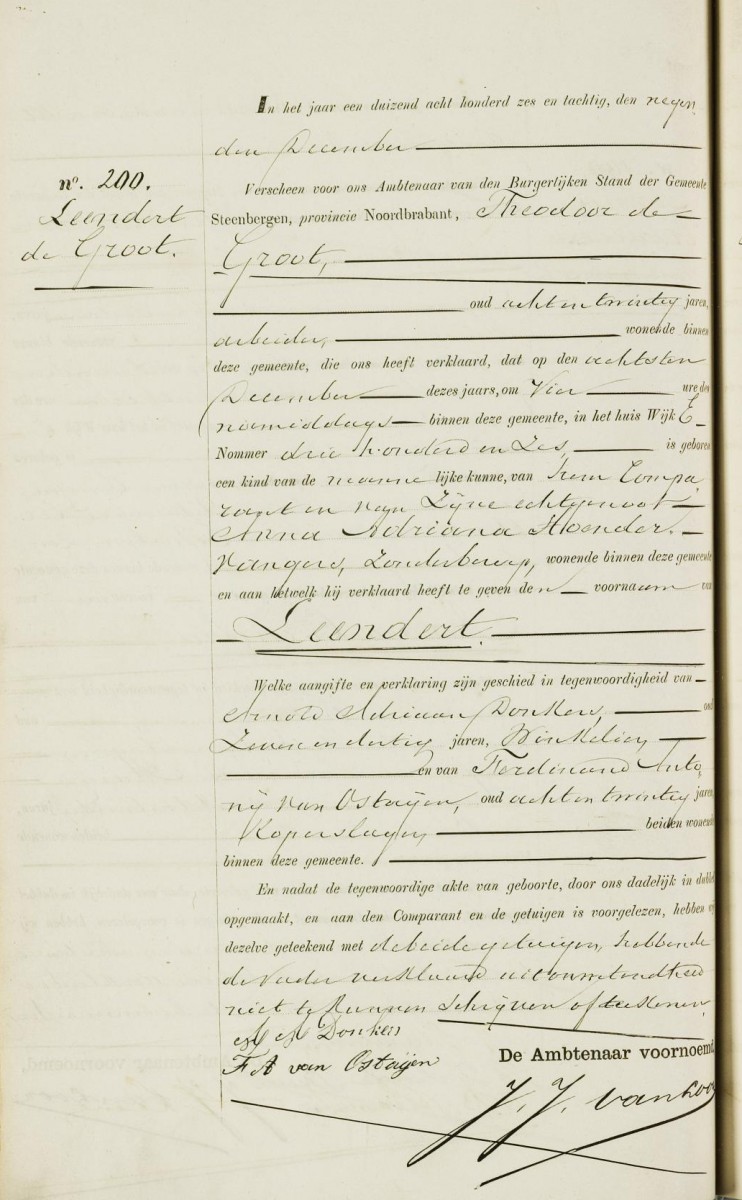 In het jaar een duizend acht honderd zes en tachtig, den negen
den December
nº. 200.
Leendert
de Groot.
Verscheen voor ons Ambtenaar van den Burgerlijken Stand der Gemeente
Steenbergen, provincie Noordbrabant, Theodoor de
Groot,
oud acht en twintig jaren,
arbeider, wonende binnen
deze gemeente, die ons heeft verklaard, dat op den achtsten
December dezes jaars, om Vier ure des
namiddags binnen deze gemeente, in het huis Wijk E
Nommer drie honderd en Zes, is geboren
een kind van de manne lijke kunne, van hem Compa
rant en van Zijne echtgenoot
Anna Adriana Hoender
vangers, Zonder beroep, wonende binnen deze gemeente
en aan hetwelk hij verklaard heeft te geven den voornaam van
Leendert.
Welke aangifte en verklaring zijn geschied in tegenwoordigheid van
Arnold Adriaan Donkers, oud
Zeven en dertig jaren, Winkelier
en van Ferdinand Anto
nij van Ostaijen, oud acht en twintig jaren
Koperslager beiden wonende
binnen deze gemeente.
En nadat de tegenwoordige akte van geboorte, door ons dadelijk in dubbel
opgemaakt, en aan den Comparant en de getuigen is voorgelezen, hebben wij
dezelve geteekend met de beide getuigen, hebbende
de Vader verklaard uit onwetendheid
niet te kunnen schrijven of teekenen.
A A Donkers
F A van Ostaijen
De Ambtenaar voornoemd,
J. J. van Loon